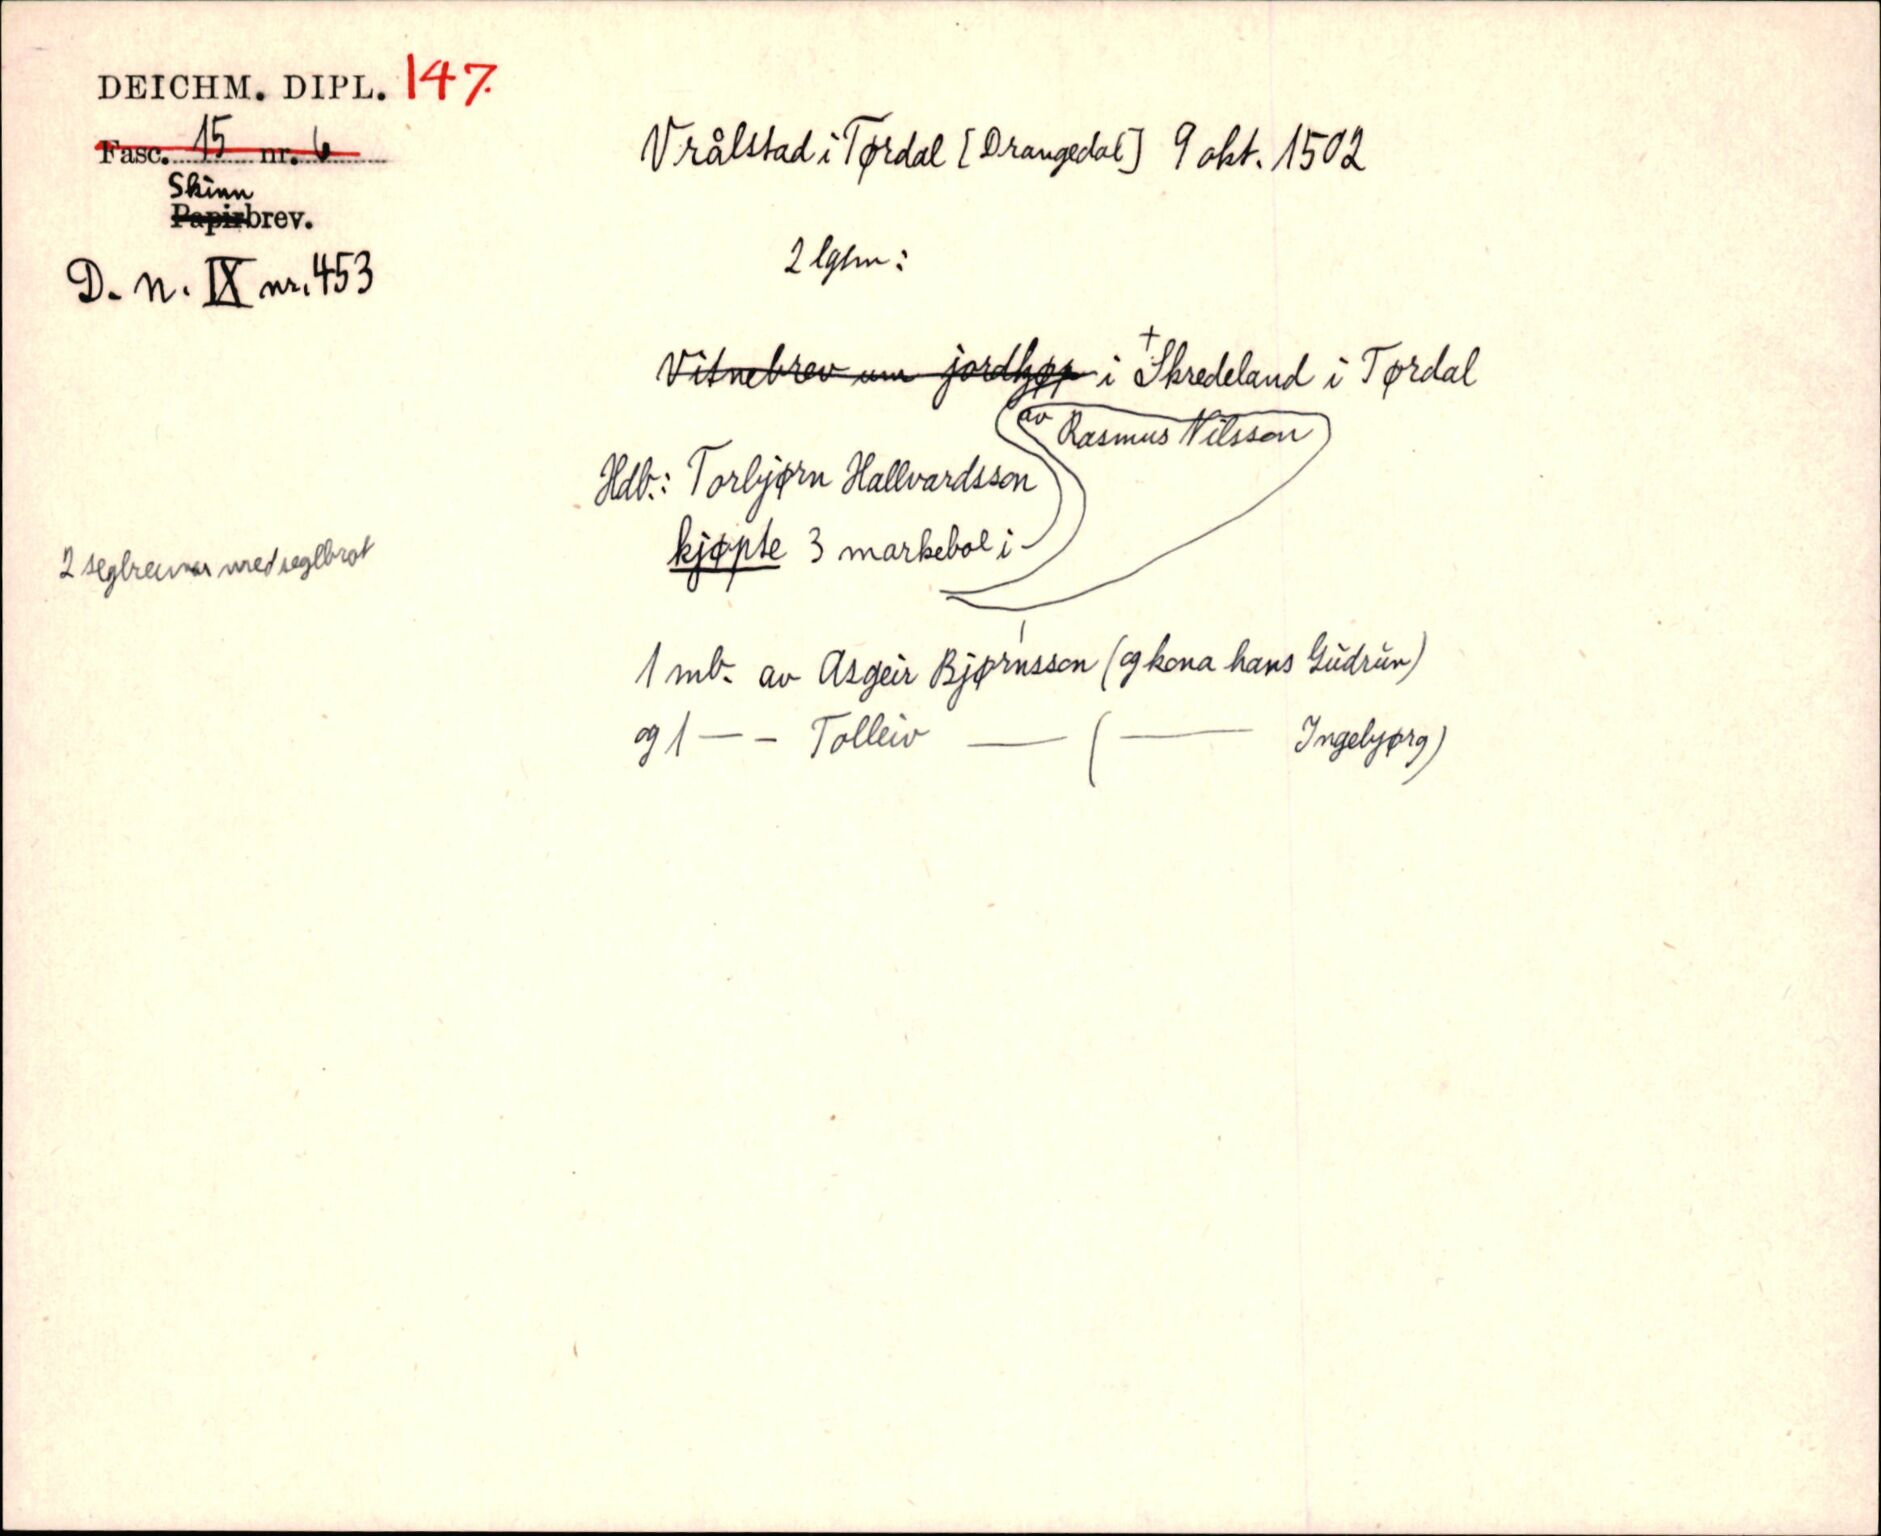 DEICHM. DIPL. 147.
Fasc. 15 nr. 6
Skinn
Papirbrev.
D. N. IX nr. 453
2 seglreimar med seglbrot
Vrålstad i Tørdal [Drangedal] 9 okt. 1502
2 lgrm:
Vitnebrev um jordkjøp i +Skredeland i Tørdal
av Rasmus Nilsson
Hdb.: Torbjørn Hallvardsson
kjøpte 3 markebol i
1 mb. av Asgeir Bjørnsson (og kona hans Gudrun)
og 1 — – Tolleiv — ( — Ingebjørg)